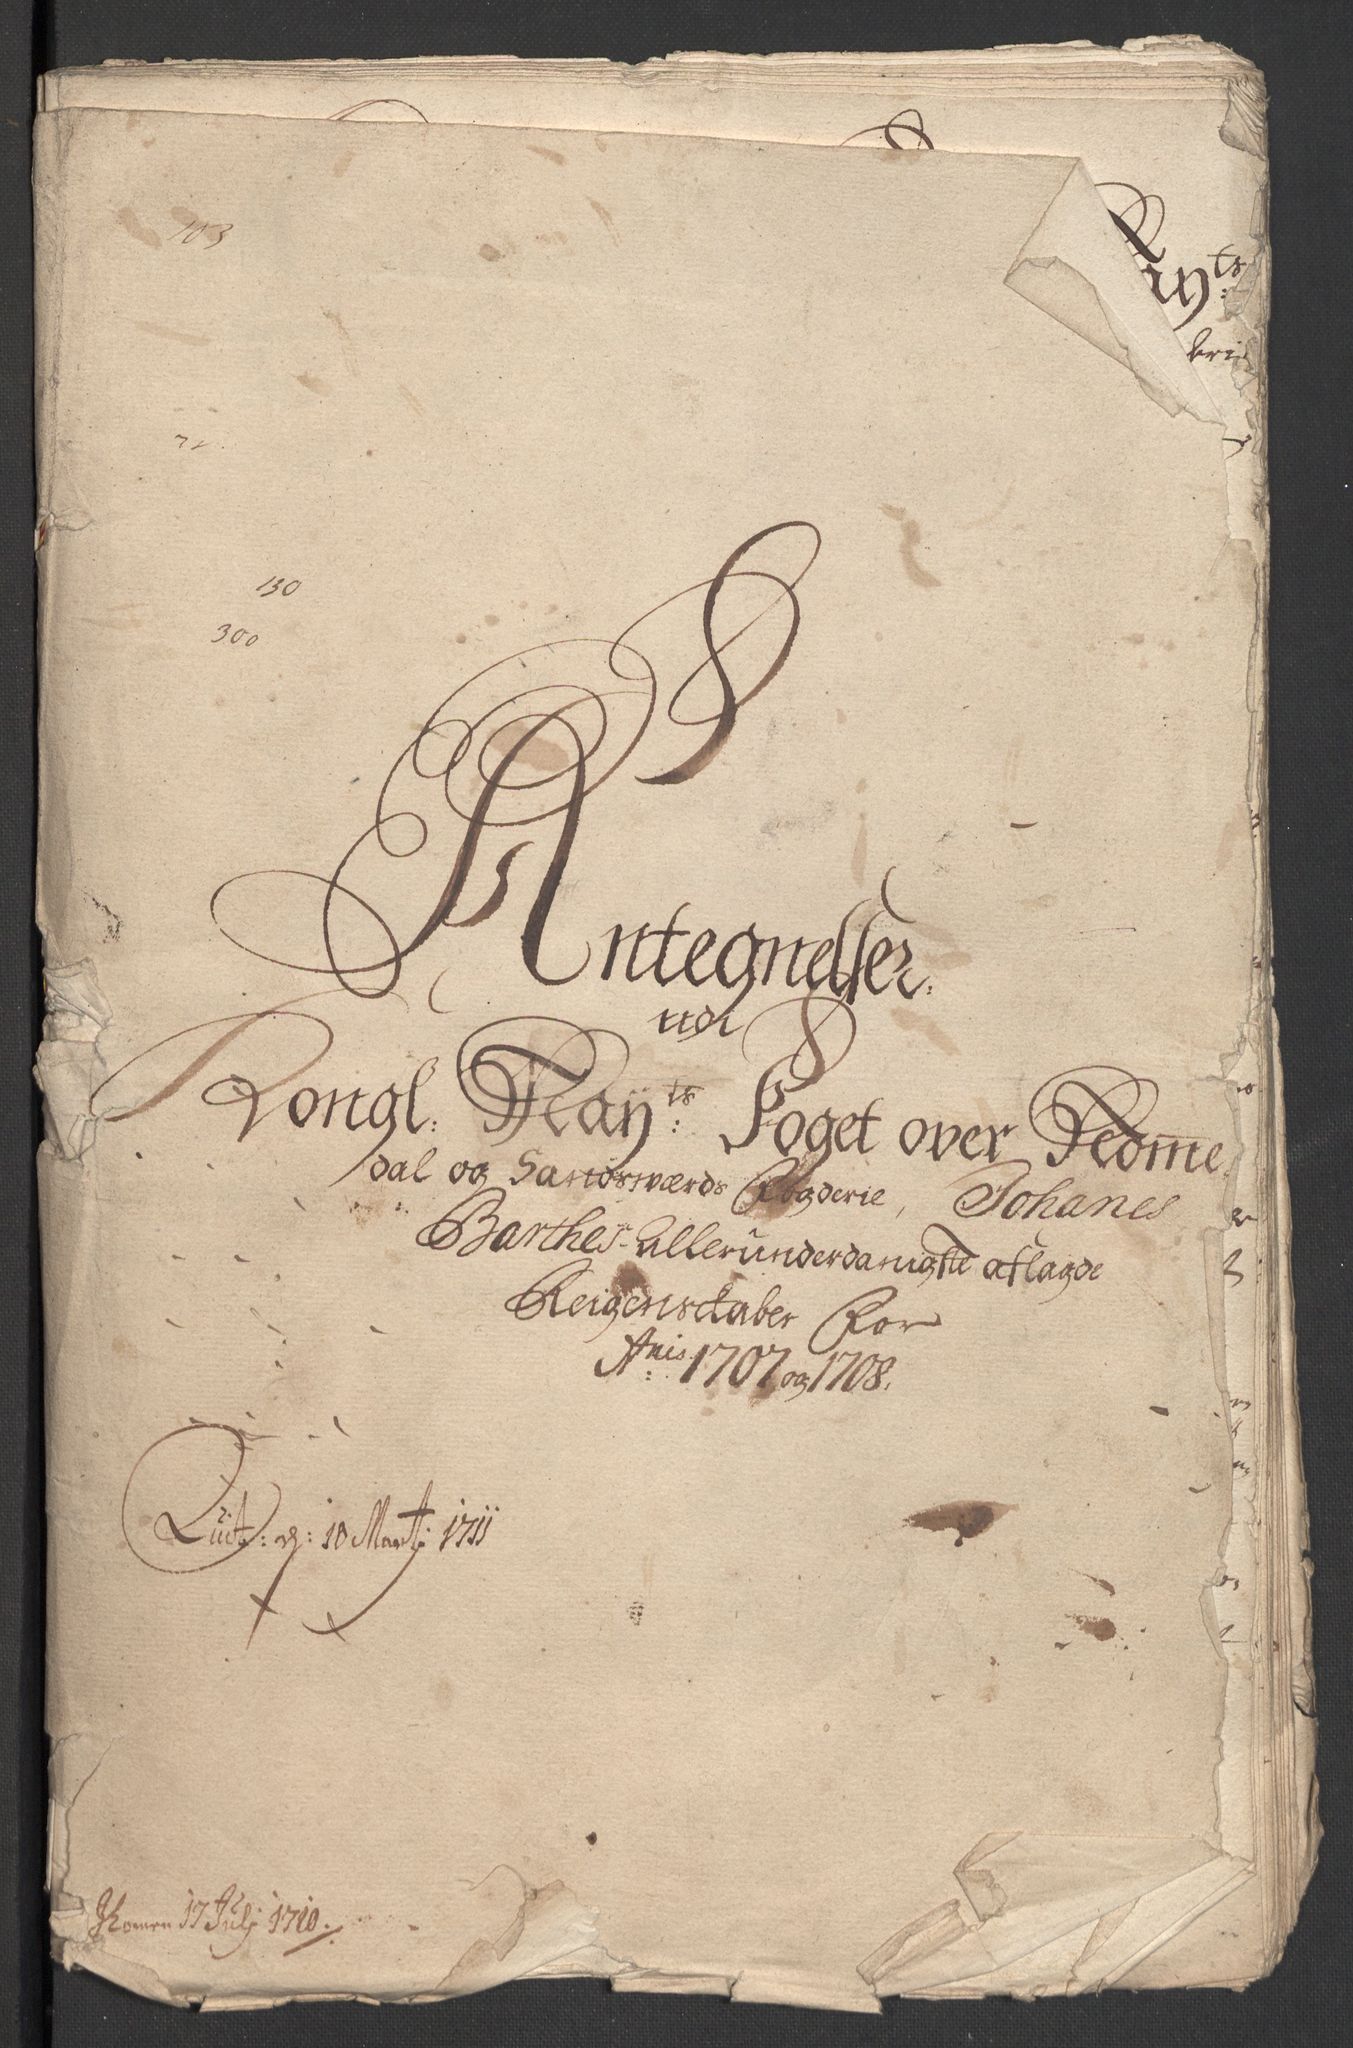 103
ts
Kay:
bri
71
130
300
Antegnelser
udi
Kongl: May:ts Foget over Nōme
dal og Sandsværds Fogderie, Johanes
Barthes Allerunderdanigste aflagde
Reigenskaber For
Anis: 1707 og 1708.
Quit: d: 18 Marti 1711
Komen 17 Julj 1710.